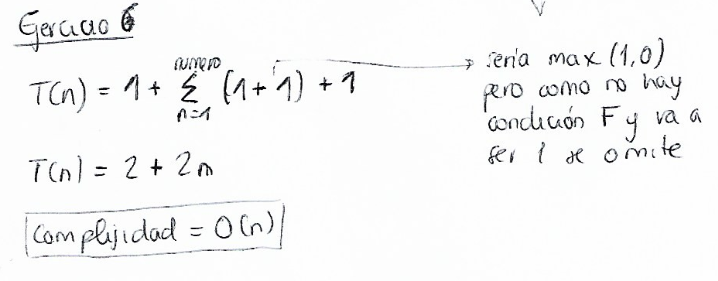 Ejercicio 6
T(n) = 1 + numero Σ n=1 (1+1) + 1
→ sería max (1,0)
pero como no hay
condición F y va a
ser 1 se omite
T(n) = 2 + 2n
Complejidad = O(n)